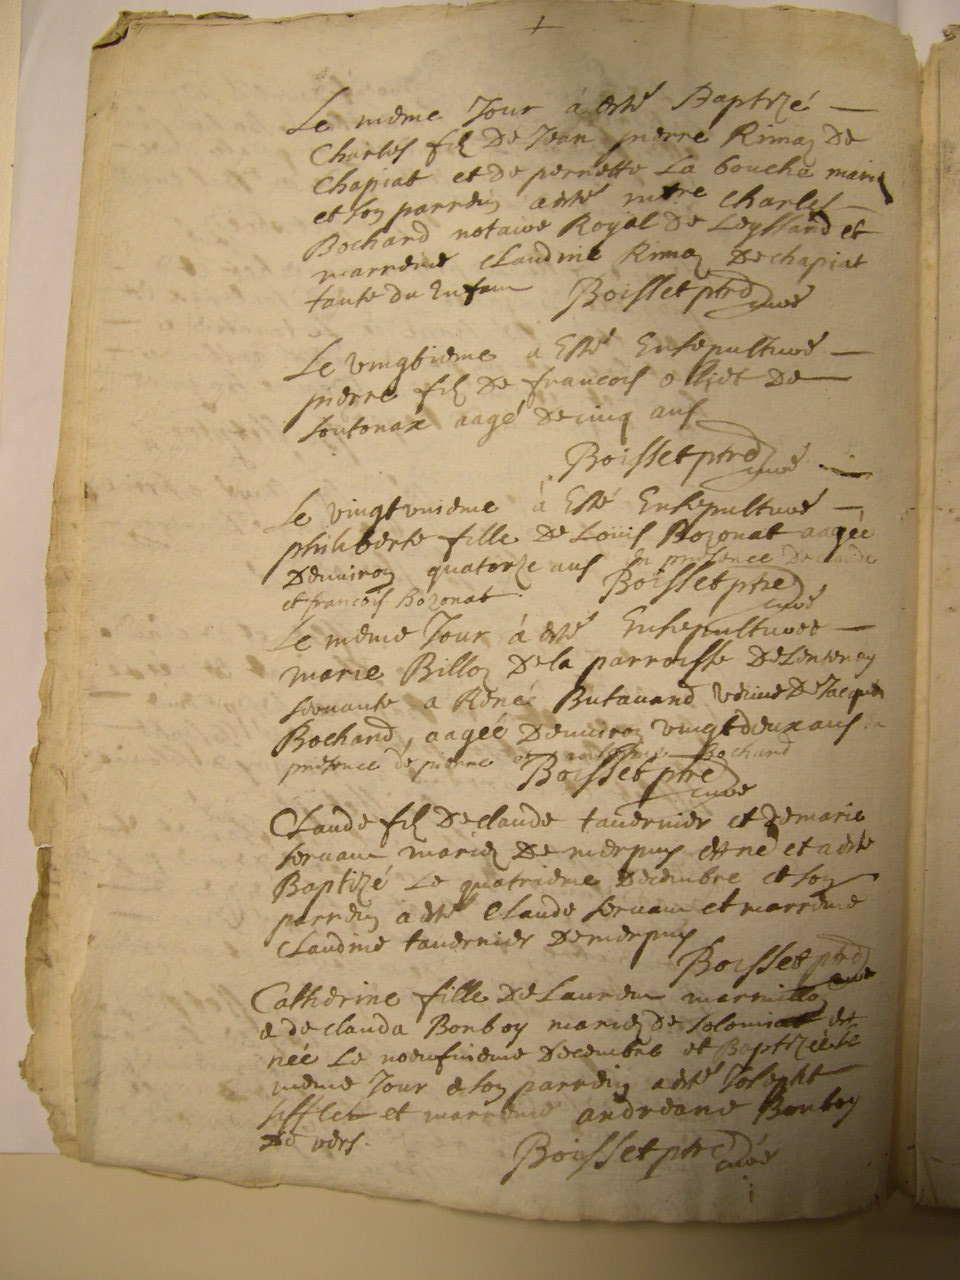 Le meme Jour à esté Baptizé
Charles fil De Jean pierre Rimoz De
Chapiat et De pernette La bouche mariez
et son parrein a esté mtre Charles
Bochard notaire Royal De Leyssard et
marreine Claudine Rimoz De chapiat
tante du Enfan Boisset ptre curé
Le vingtieme a Esté Ensepulturé
pierre fil De francois olliet De
soutonax aagé De cinq ans
Boisset ptre curé
Le vingtunieme à Esté Ensepulturé
philiberte fille De Loüis Bozonat aagée
Denviron quatorze ans En presence De claude
et francois Bozonat Boisset ptre curé
Le meme Jour à esté Ensepulturee
marie Billoz De la parroisse De Lentenay
servante a René Butavand veuve De Jacque
Bochard, aagée Denviron vingtdeux ans en
presence de pierre et Bochard
Boisset ptre curé
Claude fil De claude tavernier et De marie
servan mariez De merpuis est né et a esté
Baptizé Le quatrieme Decembre et son
parrein à esté Claude servan et marreine
Claudine tavernier De merpuis
Boisset ptre curé
Catherine fille De Laurens marmilloz
e de clauda Bonboy mariez De solomiat est
née Le noeufvieme Decembre et Baptizée le
meme Jour e son parrein a esté Joseph
sifflet et marreine andreane Bonboy
De vers.
Boisset ptre curé